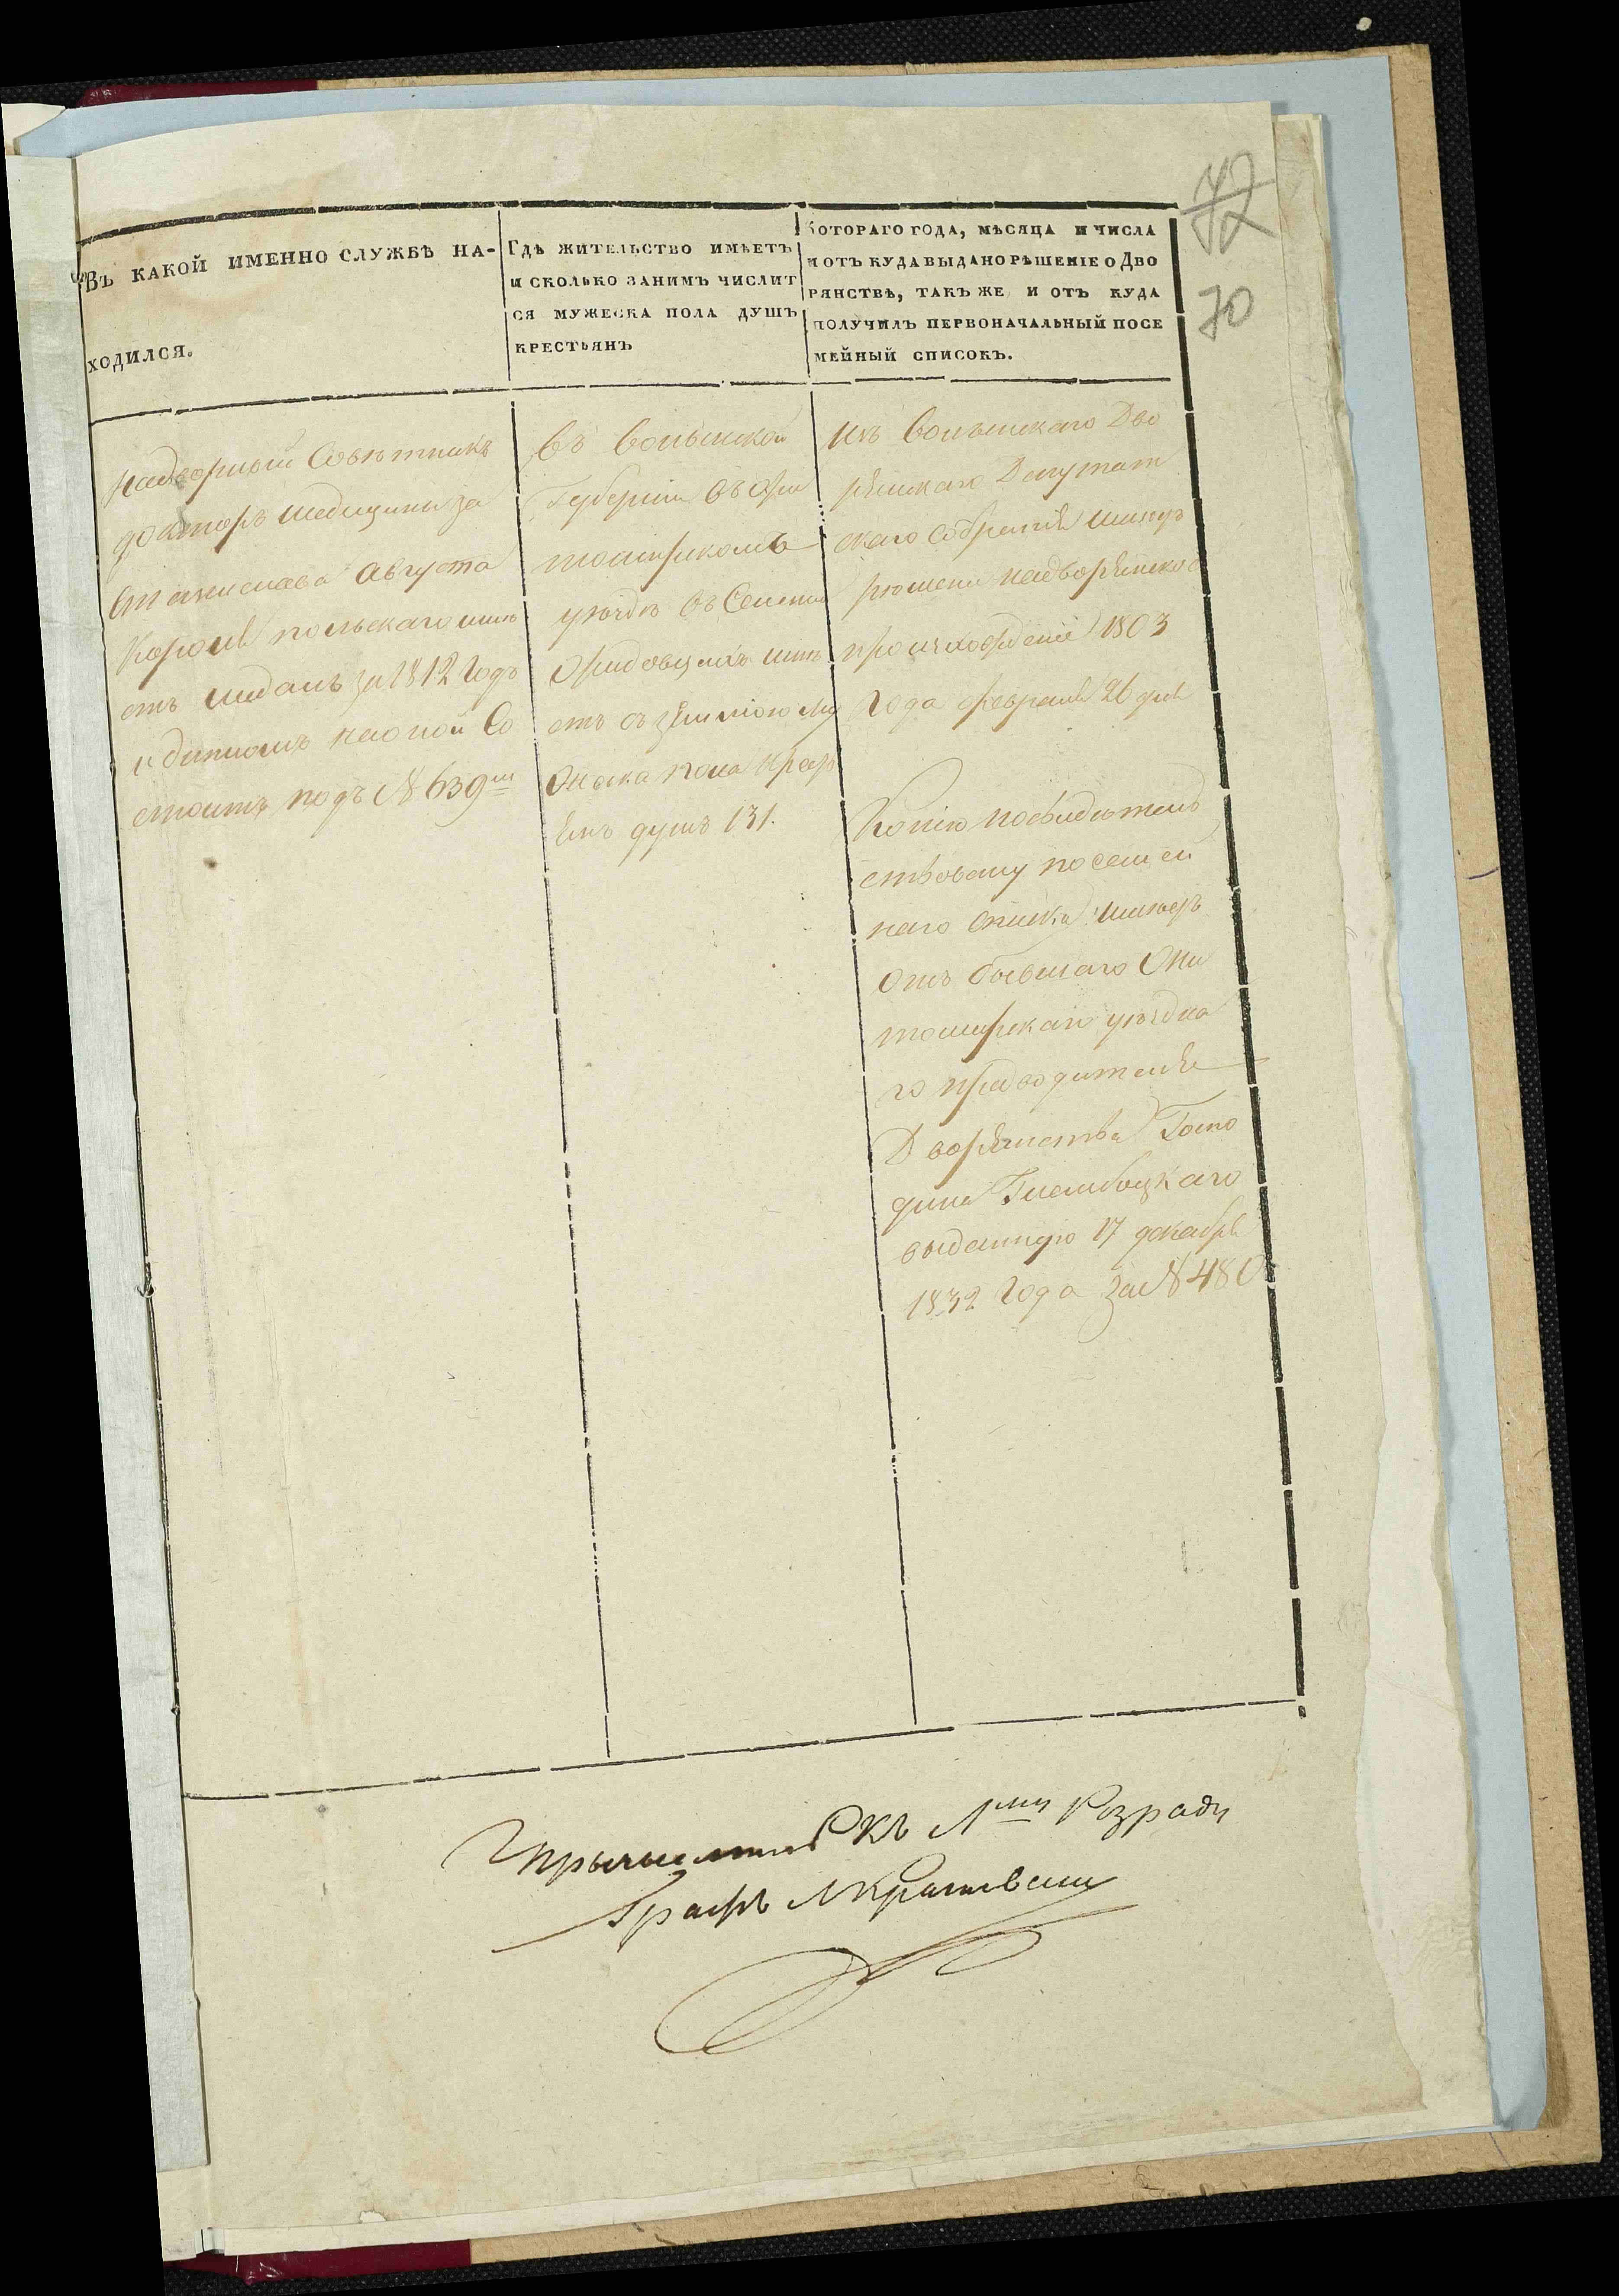 72
70
Въ какой именно службѣ на-
ходился.
Гдѣ жительство имѣетъ
и сколько занимъ числит
ся мужеска пола душъ
крестьянъ
Котораго года, мѣсяца и числа
и отъ куда выдано рѣшеніе о Дво
рянствѣ, такъ же и отъ куда
получилъ первоначальный посе
мейный списокъ.
Надворный Совѣтникъ
докторъ медицины за
Станислава Августа
Короля польскаго имѣ
етъ медаль за 1812 Годъ
и дипломъ на оной Со
стоитъ подъ № 639м
Въ Волынской
Губерніи въ Жи
томирскомъ
уѣздѣ въ
имѣ
етъ съ
Жеска пола крес
янъ душъ 131.
изъ Волынскаго Дво
рянскаго Депутат
скаго Собранія имѣетъ
рѣшеніе на дворянское
происхожденіе 1803
Года февраля 26 дня
Копію посвидѣтель
ствовану посемей
наго списка имѣетъ
Отъ бывшаго Жи
томирскаго уѣздна
го предводителя
Дворянства Госпо
дина Гцаго
выданную 17 декабря
1832 Года за № 480
къ 1му Розряду
Графъ